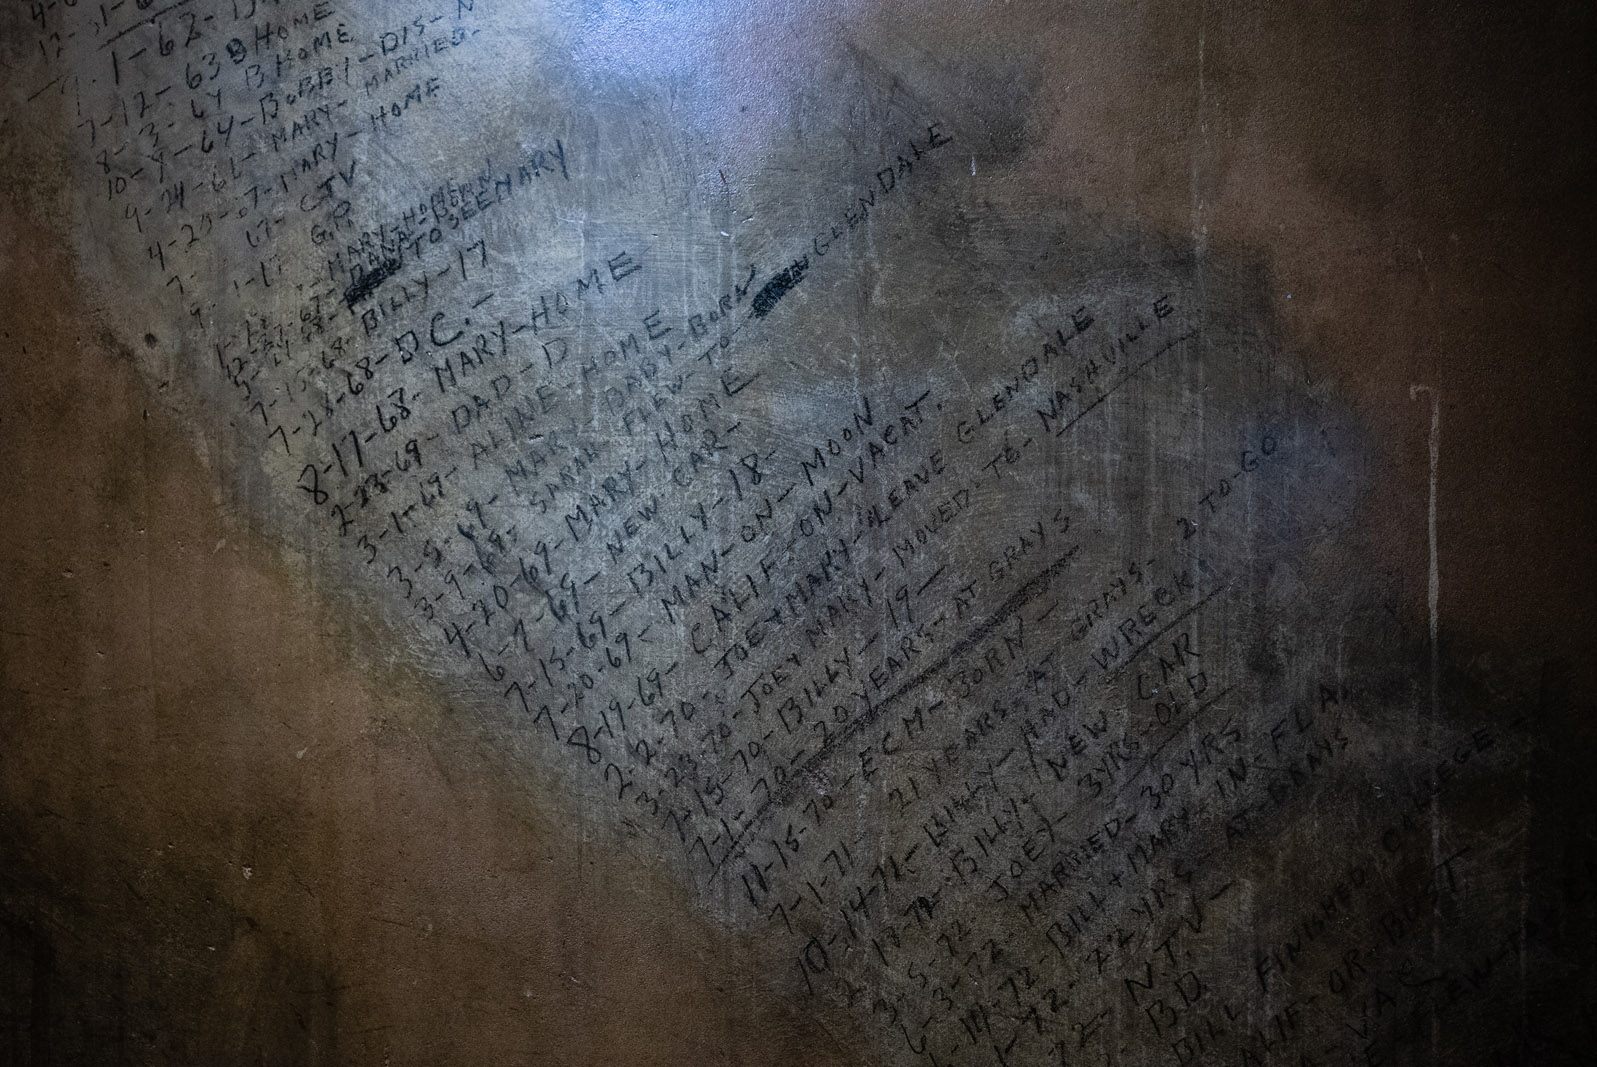 1-63-
7-12-63 B HOME
8-3-64 B HOME
10-9-64-BOBBY-DIS-
9-24-66-MARY-MARRIED-
4-23-67-MARY-HOME
7- 67- CTV
9- 1-17 G.P.
MARY-HOME
TO SEE MARY
7-15-68-BILLY-17
7-28-68-D.C.-
8-17-68-MARY-HOME
2-23-69-DAD-D
3-1-69-ALINE-HOME
3-5-69-MARY BABY-BORN
3-9-69-SARAH FLEW-TO- GLENDALE
4-20-69-MARY-HOME
6-7-69-NEW CAR-
7-15-69-BILLY-18-
7-20-69-MAN-ON-MOON
8-19-69-CALIF-ON-VACAT.
2-2-70-JOEY+MARY-LEAVE GLENDALE
3-23-70-JOEY MARY-MOVED-TO-NASHVILLE
7-15-70-BILLY-19-
7-1-70-20 YEARS-AT GRAYS
11-15-70-ECM-BORN-
7-1-71-21 YEARS-AT GRAYS- 2 TO-GO
10-14-71-BILLY-HAD-WRECK
2-13-72-BILLY-NEW CAR
3-5-72-JOEY-3YRS-OLD
6-3-72-MARRIED-30 YRS
72-BILL+MARY-IN-FLA.
1-72-22 YRS-AT GRAYS
72-N.T.V-
B.D.
BILL FINISHED COLLEGE-
CALIF-OR-BUST